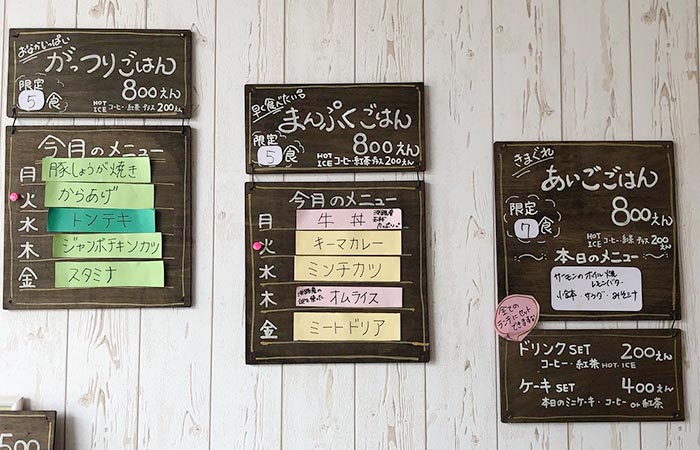 おなかいっぱい
がっつりごはん
限定
5食
800えん
HOT
ICE コーヒー・紅茶 プラス 200えん
今月のメニュー
月 豚しょうが焼き
火 からあげ
水 トンテキ
木 ジャンボチキンカツ
金 スタミナ
早く食べたい品
まんぷくごはん
限定
5食
800えん
HOT
ICE コーヒー・紅茶 プラス 200えん
今月のメニュー
月 牛丼 淡路産
玉ねぎ
火 キーマカレー
水 ミンチカツ
木 淡路産の
使った オムライス
金 ミートドリア
きまぐれ
あいごごはん
限定
7食
800えん
HOT
ICE コーヒー・紅茶 プラス 200えん
本日のメニュー
サーモンのホイル焼
レモンバター
小鉢・サラダ・みそ汁
全ての
ランチにセット
できます
ドリンク SET 200えん
コーヒー・紅茶 HOT・ICE
ケーキ SET 400えん
本日のミニケーキ・コーヒー or 紅茶
500